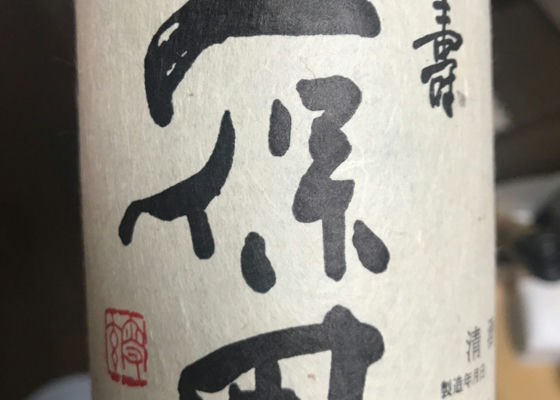 壽
久保田
清
製造年月日